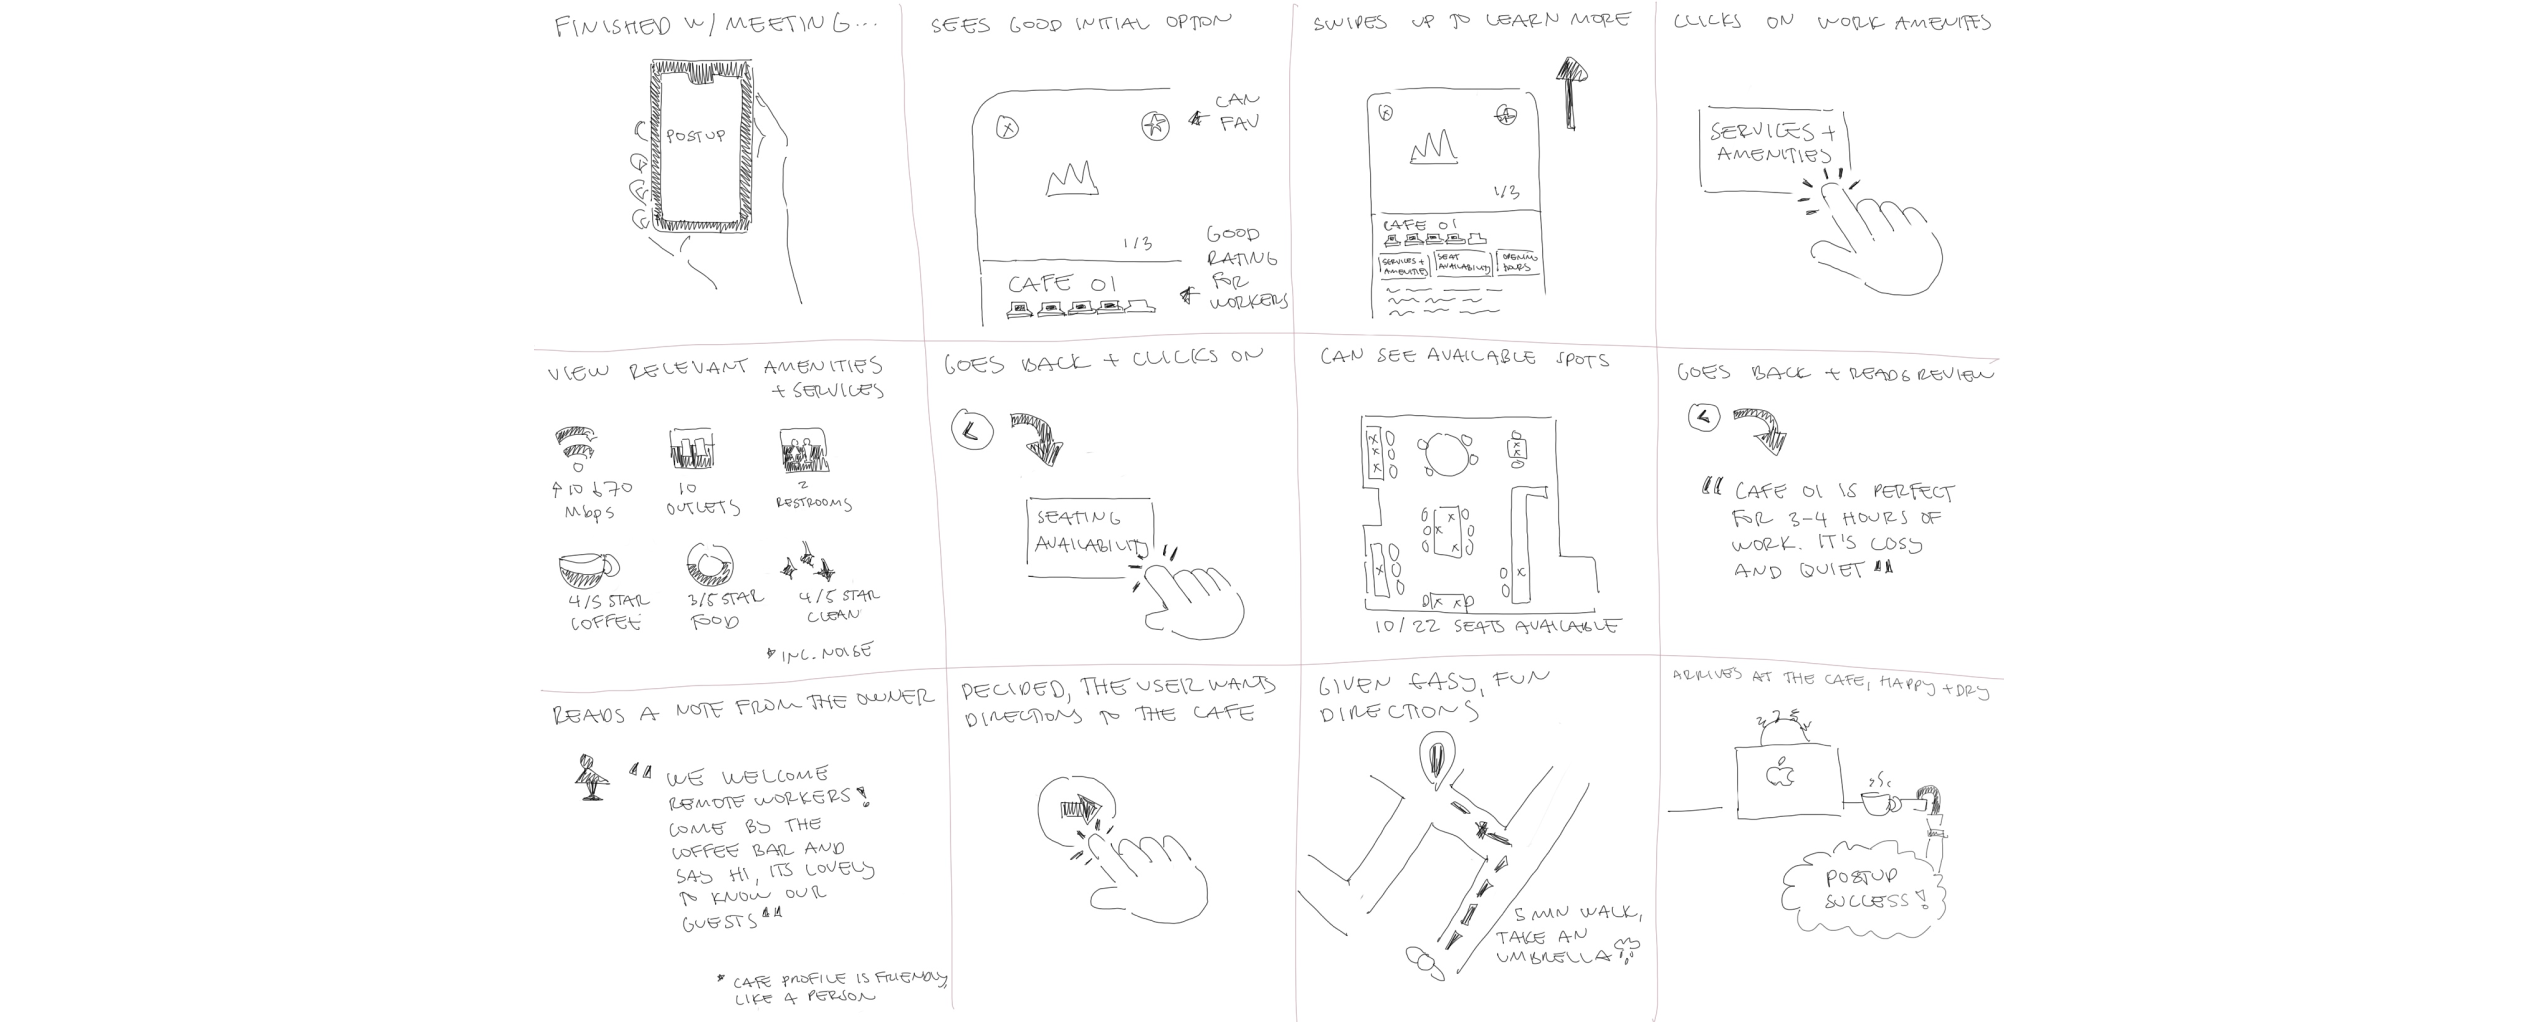 FINISHED W/ MEETING...
POSTUP
SEES GOOD INITIAL OPTION
CAN
FAV
1/3
GOOD
RATING
FOR
WORKERS
CAFE 01
SWIPES UP TO LEARN MORE
1/3
CAFE 01
SERVICES +
AMENITIES
SEAT
AVAILABILITY
OPENING
HOURS
CLICKS ON WORK AMENITES
SERVICES +
AMENITIES
VIEW RELEVANT AMENITIES
+ SERVICES
↑10 ↓70
Mbps
10
OUTLETS
2
RESTROOMS
4/5 STAR
COFFEE
3/5 STAR
FOOD
4/5 STAR
CLEAN
* INC. NOISE
GOES BACK + CLICKS ON
SEATING
AVAILABILITY
CAN SEE AVAILABLE SPOTS
10/22 SEATS AVAILABLE
GOES BACK + READS REVIEW
"CAFE 01 IS PERFECT
FOR 3-4 HOURS OF
WORK. IT'S COSY
AND QUIET"
READS A NOTE FROM THE OWNER
"WE WELCOME
REMOTE WORKERS!
COME BY THE
COFFEE BAR AND
SAY HI, ITS LOVELY
TO KNOW OUR
GUESTS"
* CAFE PROFILE IS FRIENDLY,
LIKE A PERSON
DECIDED, THE USER WANTS
DIRECTIONS TO THE CAFE
GIVEN EASY, FUN
DIRECTIONS
5 MIN WALK,
TAKE AN
UMBRELLA
ARRIVES AT THE CAFE, HAPPY + DRY
POSTUP
SUCCESS!